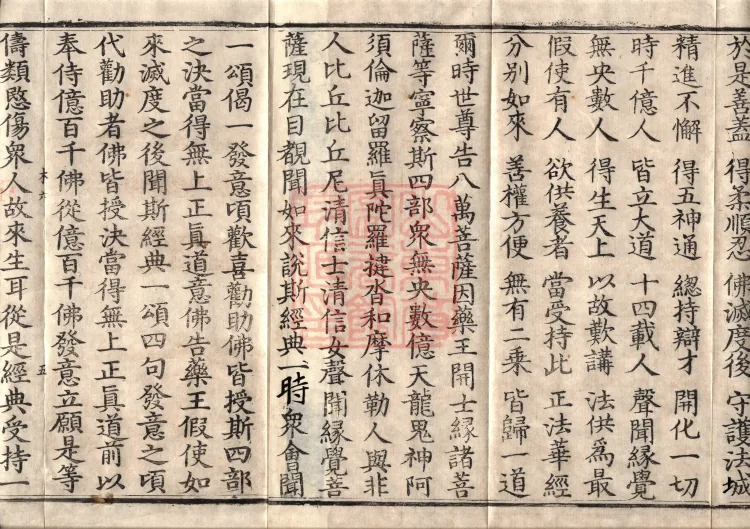 於是善蓋 得柔順忍 佛滅度後 守護法城
精進不懈 得五神通 緫持辯才 開化一切
時千億人 皆立大道 十四載人 聲聞緣覺
無央數人 得生天上 以故歎講 法供爲最
假使有人 欲供養者 當受持此 正法華經
分別如來 善權方便 無有二乗 皆歸一道
爾時世尊告八萬菩薩因藥王開士緣諸菩
薩等寧察斯四部衆無央數億天龍鬼神阿
須倫迦留羅眞陀羅揵沓和摩休勒人與非
人比丘比丘尼清信士清信女聲聞緣覺菩
薩現在目覩聞如來說斯經典一時衆會聞
一頌偈一發意頃歡喜勸助佛皆授斯四部
之決當得無上正眞道意佛告藥王假使如
來滅度之後聞斯經典一頌四句發意之頃
代勸助者佛皆授決當得無上正眞道前以
奉侍億百千佛從億百千佛發意立願是等
儔類愍傷衆人故來生耳從是經典受持一